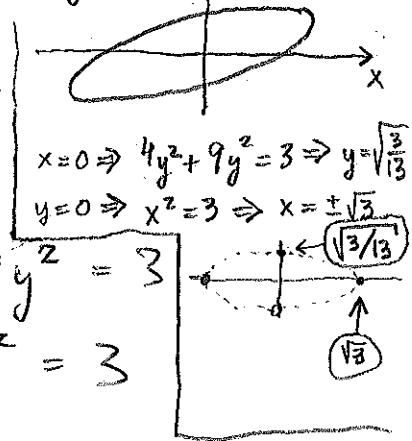 x
x=0 ⇒ 4y²+ 9y² = 3 ⇒ y=√(3/13)
y=0 ⇒ x² = 3 ⇒ x = ±√3
y² = 3
√(3/13)
² = 3
√3